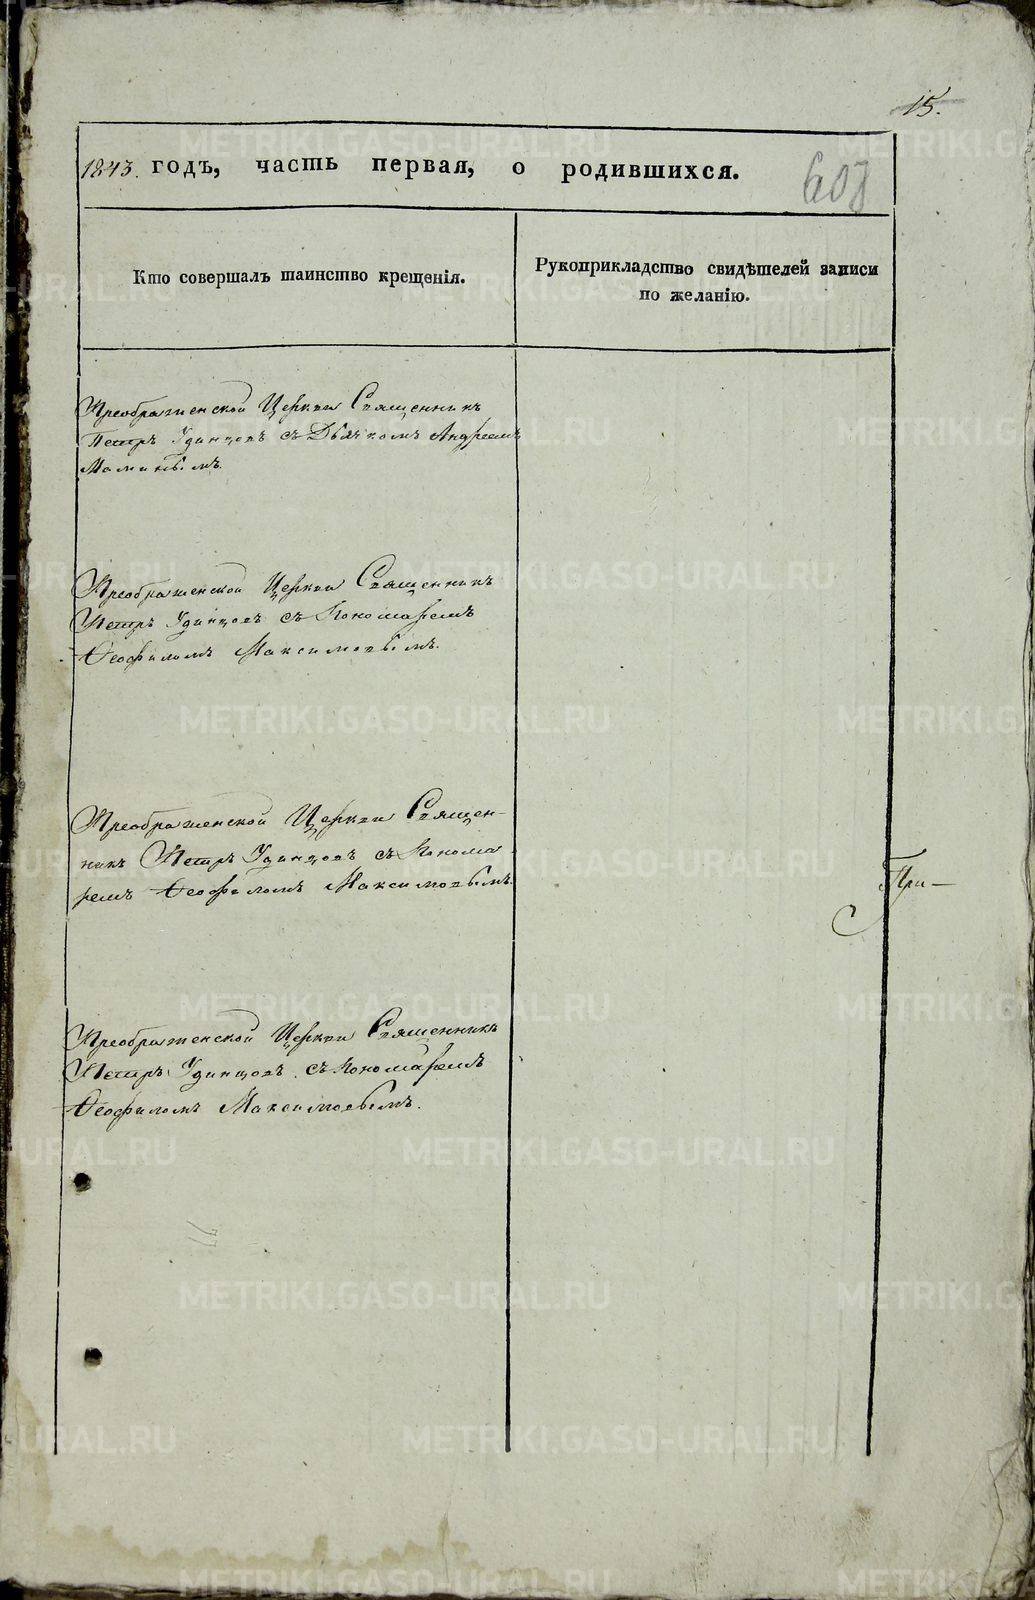 15.
1843. годъ, часть первая, о родившихся.
608
Кто совершалъ таинство крещенія.
Рукоприкладство свидѣтелей записи
по желанію.
Преображенской Церкви Священникъ
Петръ Удинцовъ съ Дьячкомъ Андреемъ
Маминымъ.
Преображенской Церкви Священникъ
Петръ Удинцовъ съ Пономаремъ
Ѳеофиломъ Максимовымъ.
Преображенской Церкви Священ-
никъ Петръ Удинцовъ съ Понома
ремъ Ѳеофиломъ Максимовымъ.
При—
Преображенской Церкви Священникъ
Петръ Удинцовъ съ Пономаремъ
Ѳеофиломъ Максимовымъ.
METRIKI.GASO-URAL.RU